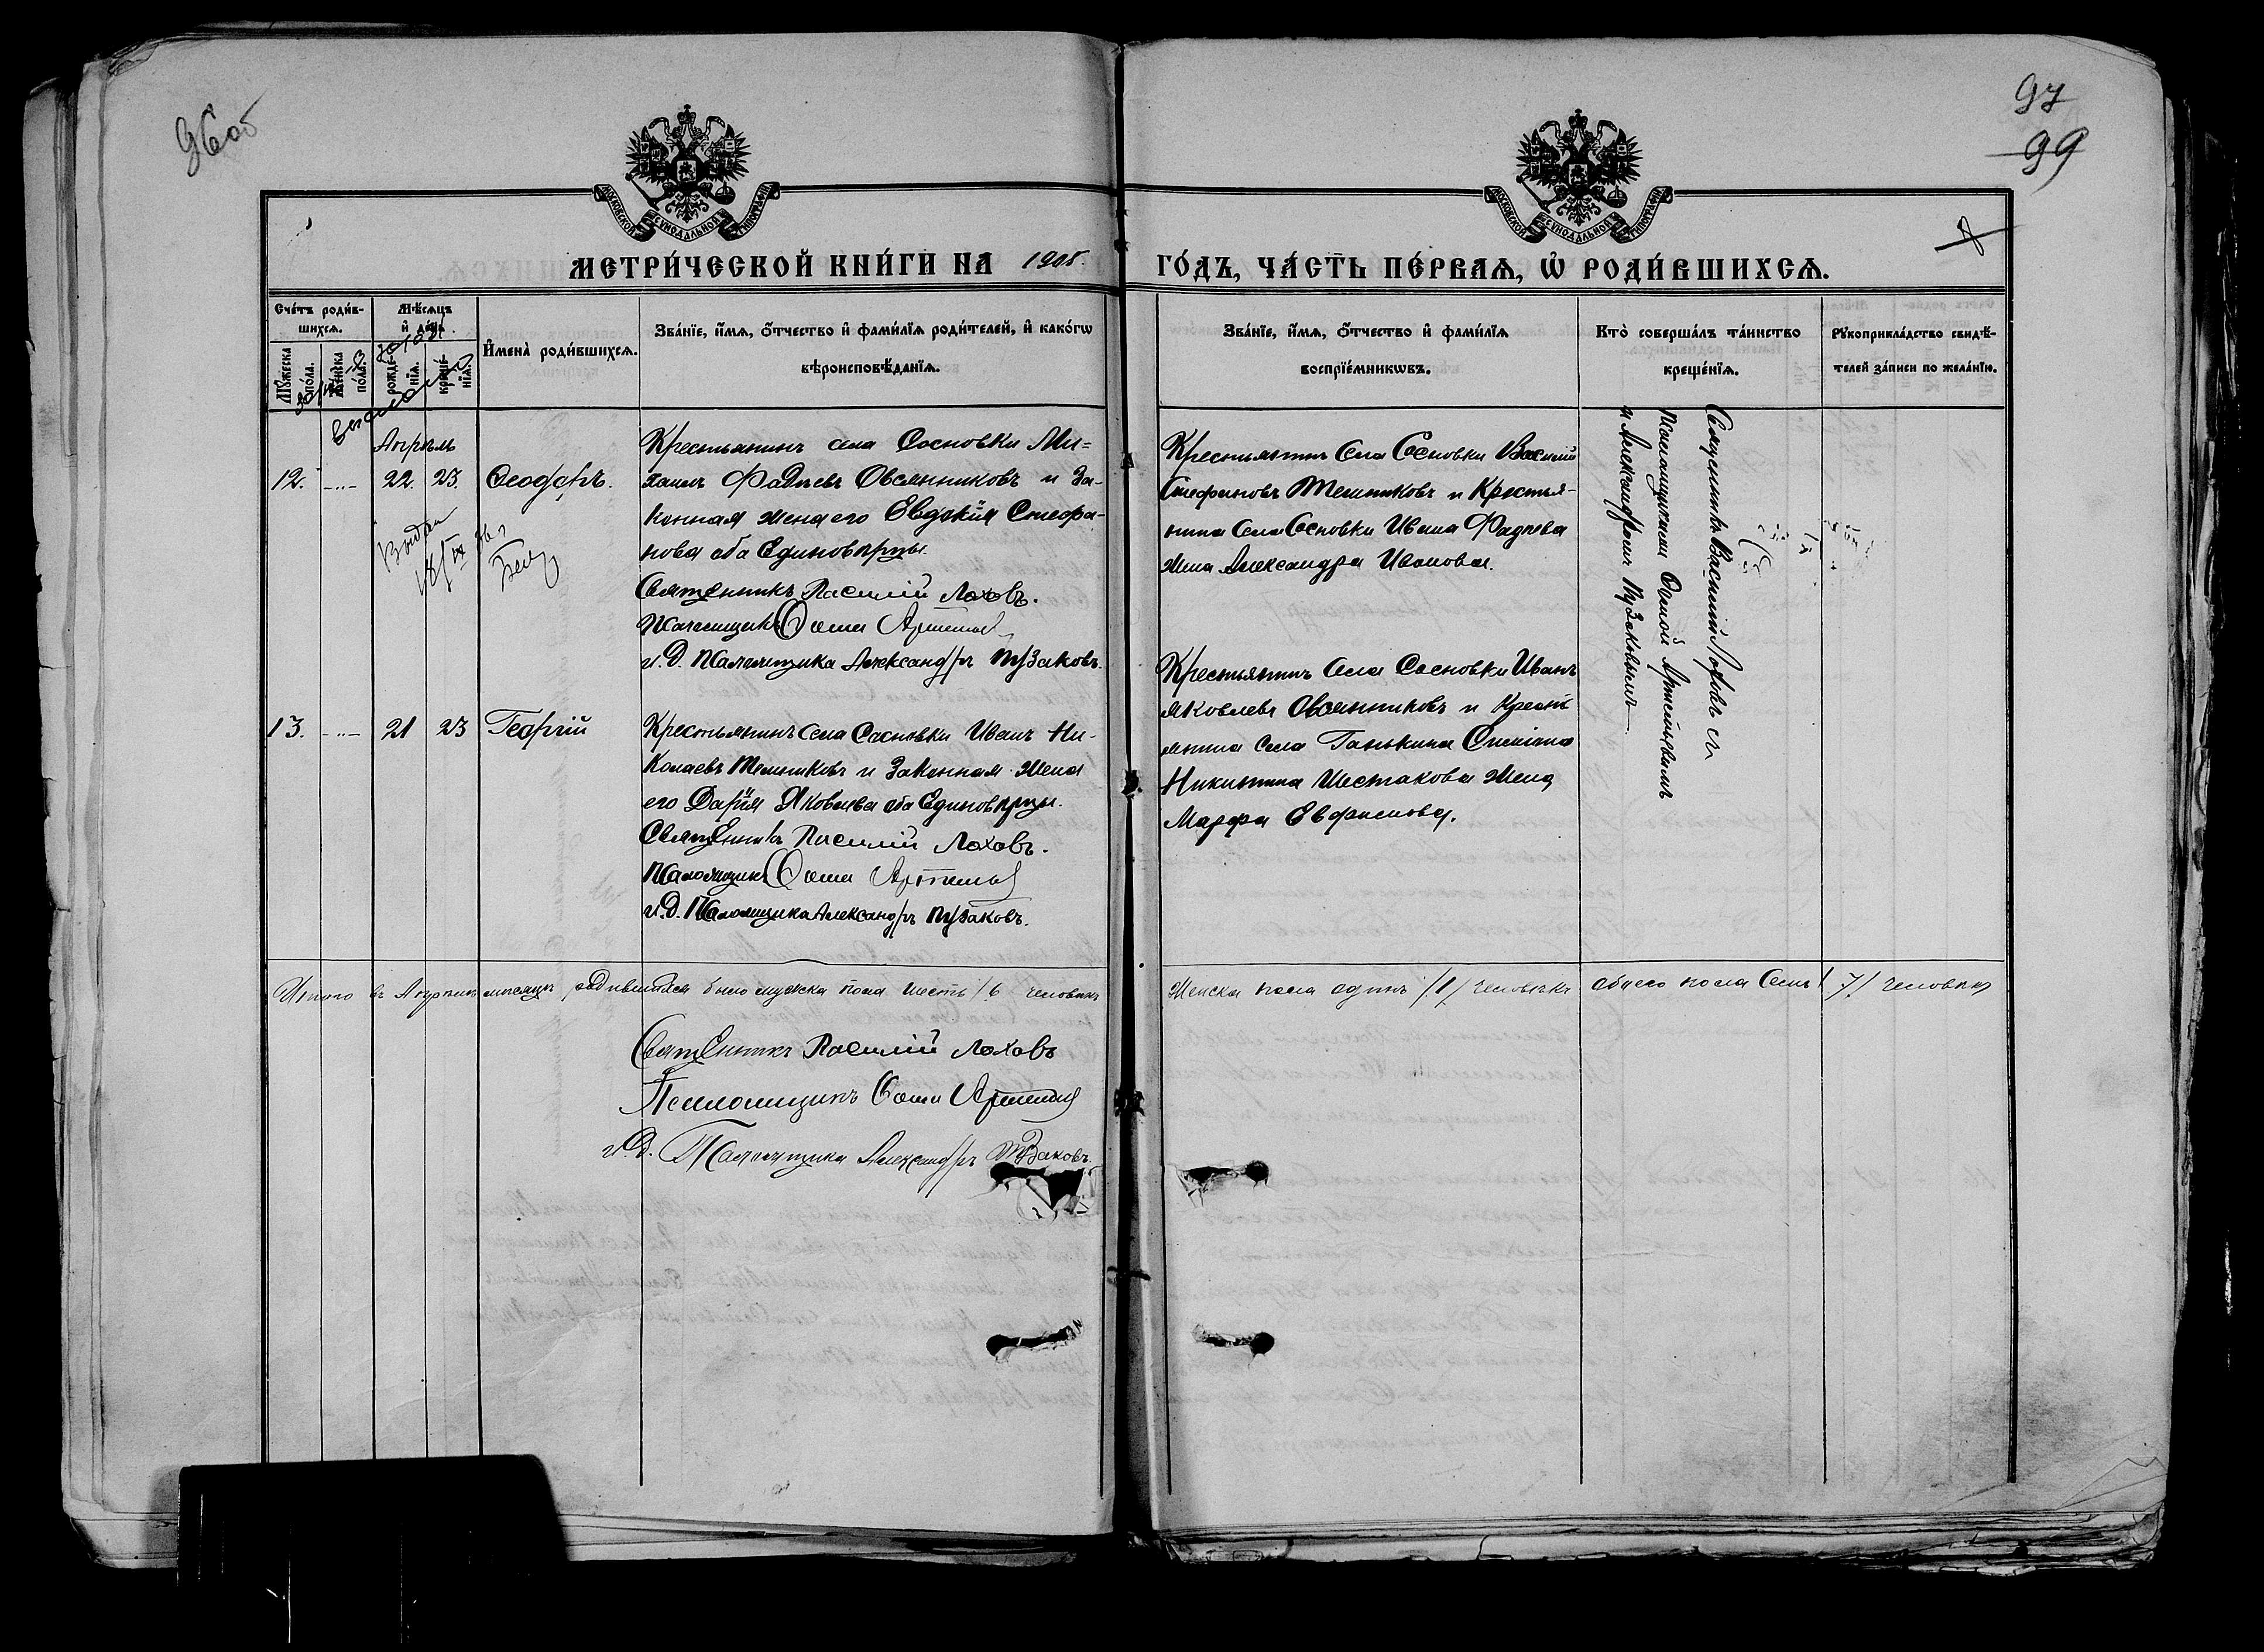 96 об
97
99
8
МОСКОВСКОЙ СѴНОДАЛЬНОЙ ТИПОГРАФІИ
МОСКОВСКОЙ СѴНОДАЛЬНОЙ ТИПОГРАФІИ
МЕТРИ́ЧЕСКОЙ КНИ́ГИ НА 1908. ГО́ДЪ, ЧА́СТЬ ПЕ́РВАѦ, Ѡ҆ РОДИ́ВШИХСѦ.
Сче́тъ роди́в-
шихсѧ.
Мꙋ́жеска по́ла.
Же́нска по́ла.
Мѣ́сѧцъ
и҆ де́нь.
рожде́-
нїѧ.
креще́-
нїѧ.
И҆мена̀ роди́вшихсѧ.
Зва́нїе, и҆́мѧ, ѻ҆́тчество и҆ фами́лїѧ роди́телей, и҆ како́гѡ
вѣроисповѣ́данїѧ.
Зва́нїе, и҆́мѧ, ѻ҆́тчество и҆ фами́лїѧ
воспрїе́мникѡвъ.
Кто̀ соверша́лъ та́инство
креще́нїѧ.
Рꙋкоприкла́дство свидѣ́-
телей за́писи по жела́нїю.
Апрѣль
12. -"- 22. 23. Ѳеодоръ.
Крестьянинъ села Сосновки Ми-
хаилъ Фадѣевъ Овсянниковъ и за-
конная жена его Евдокія Стефа-
нова оба Единовѣрцы.
Священникъ Василій Лоховъ.
Псаломщикъ Ѳома
и.д. Псаломщика Александръ Пузаковъ.
Крестьянинъ Села Сосновки Василій
Стефановъ Мельниковъ и Крестья-
нина Села Сосновки Ивана Фадѣева
жена Александра Иванова.
Священникъ Василій Лоховъ съ
Псаломщиками Ѳомой
и Александромъ Пузаковымъ
Выдан
18/IX
13. -"- 21 23 Георгій
Крестьянинъ Села Сосновки Иванъ Ни-
колаевъ Мельниковъ и Законная жена
его Дарія Яковлева оба Единовѣрцы.
Священникъ Василій Лоховъ.
Псаломщикъ Ѳома
и.д. Псаломщика Александръ Пузаковъ.
Крестьянинъ Села Сосновки Иванъ
Яковлевъ Овсянниковъ и Крест-
янина Села Ганькина
Никитина Шестакова жена
Марфа
Итого въ Апрѣлѣ мѣсяцѣ родившихся было мужска пола шесть /6 человѣкъ женска пола одинъ /1/ человѣкъ обоего пола Семь /7/ человѣкъ
Священникъ Василій Лоховъ
Псаломщикъ Ѳома
и.д. Псаломщика Александръ Пузаковъ.